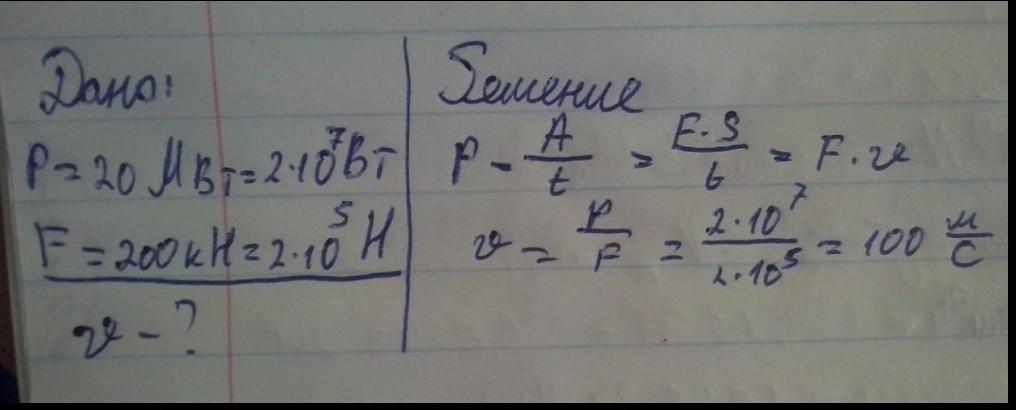 Дано:
P = 20 МВт = 2·10⁷ Вт
F = 200 кН = 2·10⁵ Н
v - ?
Решение
P = A/t = F·S/t = F·v
v = P/F = 2·10⁷/2·10⁵ = 100 м/с